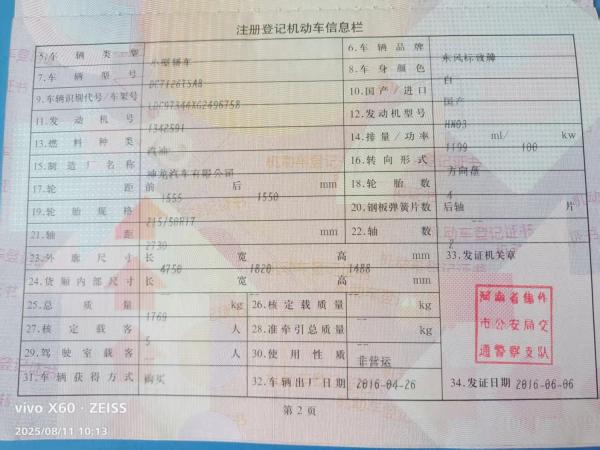 注册登记机动车信息栏
5.车辆类型 小型轿车 6.车辆品牌 东风标致牌
7.车辆型号 DC7126TSAB 8.车身颜色 白
9.车辆识别代号/车架号 LDC97344XG2496758 10.国产/进口 国产
11.发动机号 1342591 12.发动机型号 HN03
13.燃料种类 汽油 14.排量/功率 1199 ml/ 100 kw
15.制造厂名称 神龙汽车有限公司 16.转向形式 方向盘
17.轮距 前 1555 后 1550 mm 18.轮胎数 4
19.轮胎规格 215/50R17 20.钢板弹簧片数 后轴 -- 片
21.轴距 2730 mm 22.轴数 2
23.外廓尺寸 长 4750 宽 1820 高 1488 mm 33.发证机关章
24.货厢内部尺寸 长 -- 宽 -- 高 -- mm
25.总质量 1769 kg 26.核定载质量 -- kg
27.核定载客 5 人 28.准牵引总质量 -- kg
29.驾驶室载客 -- 人 30.使用性质 非营运
31.车辆获得方式 购买 32.车辆出厂日期 2016-04-26 34.发证日期 2016-06-06
河南省焦作
市公安局交
通警察支队
第2页
vivo X60 · ZEISS
2025/08/11 10:13